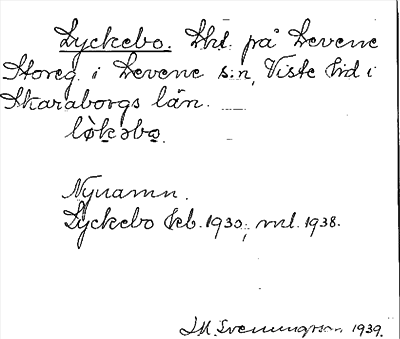 Lyckebo. Lht. på Levene
Storeg. i Levene s:n, Viste hd i
Skaraborgs län.
lø̀kəbo.
Nynamn.
Lyckebo kb. 1930; ml. 1938.
1939.